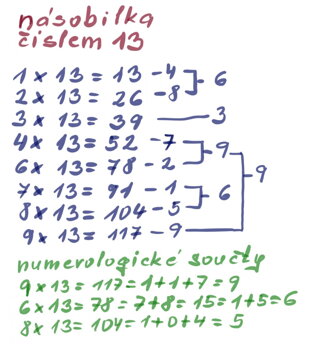 násobilka
číslem 13
1 × 13 = 13 - 4
6
2 × 13 = 26 - 8
3 × 13 = 39 — 3
4 × 13 = 52 - 7
9
6 × 13 = 78 - 2
9
7 × 13 = 91 - 1
6
8 × 13 = 104 - 5
9 × 13 = 117 - 9
numerologické součty
9 × 13 = 117 = 1+1+7 = 9
6 × 13 = 78 = 7+8 = 15 = 1+5 = 6
8 × 13 = 104 = 1+0+4 = 5